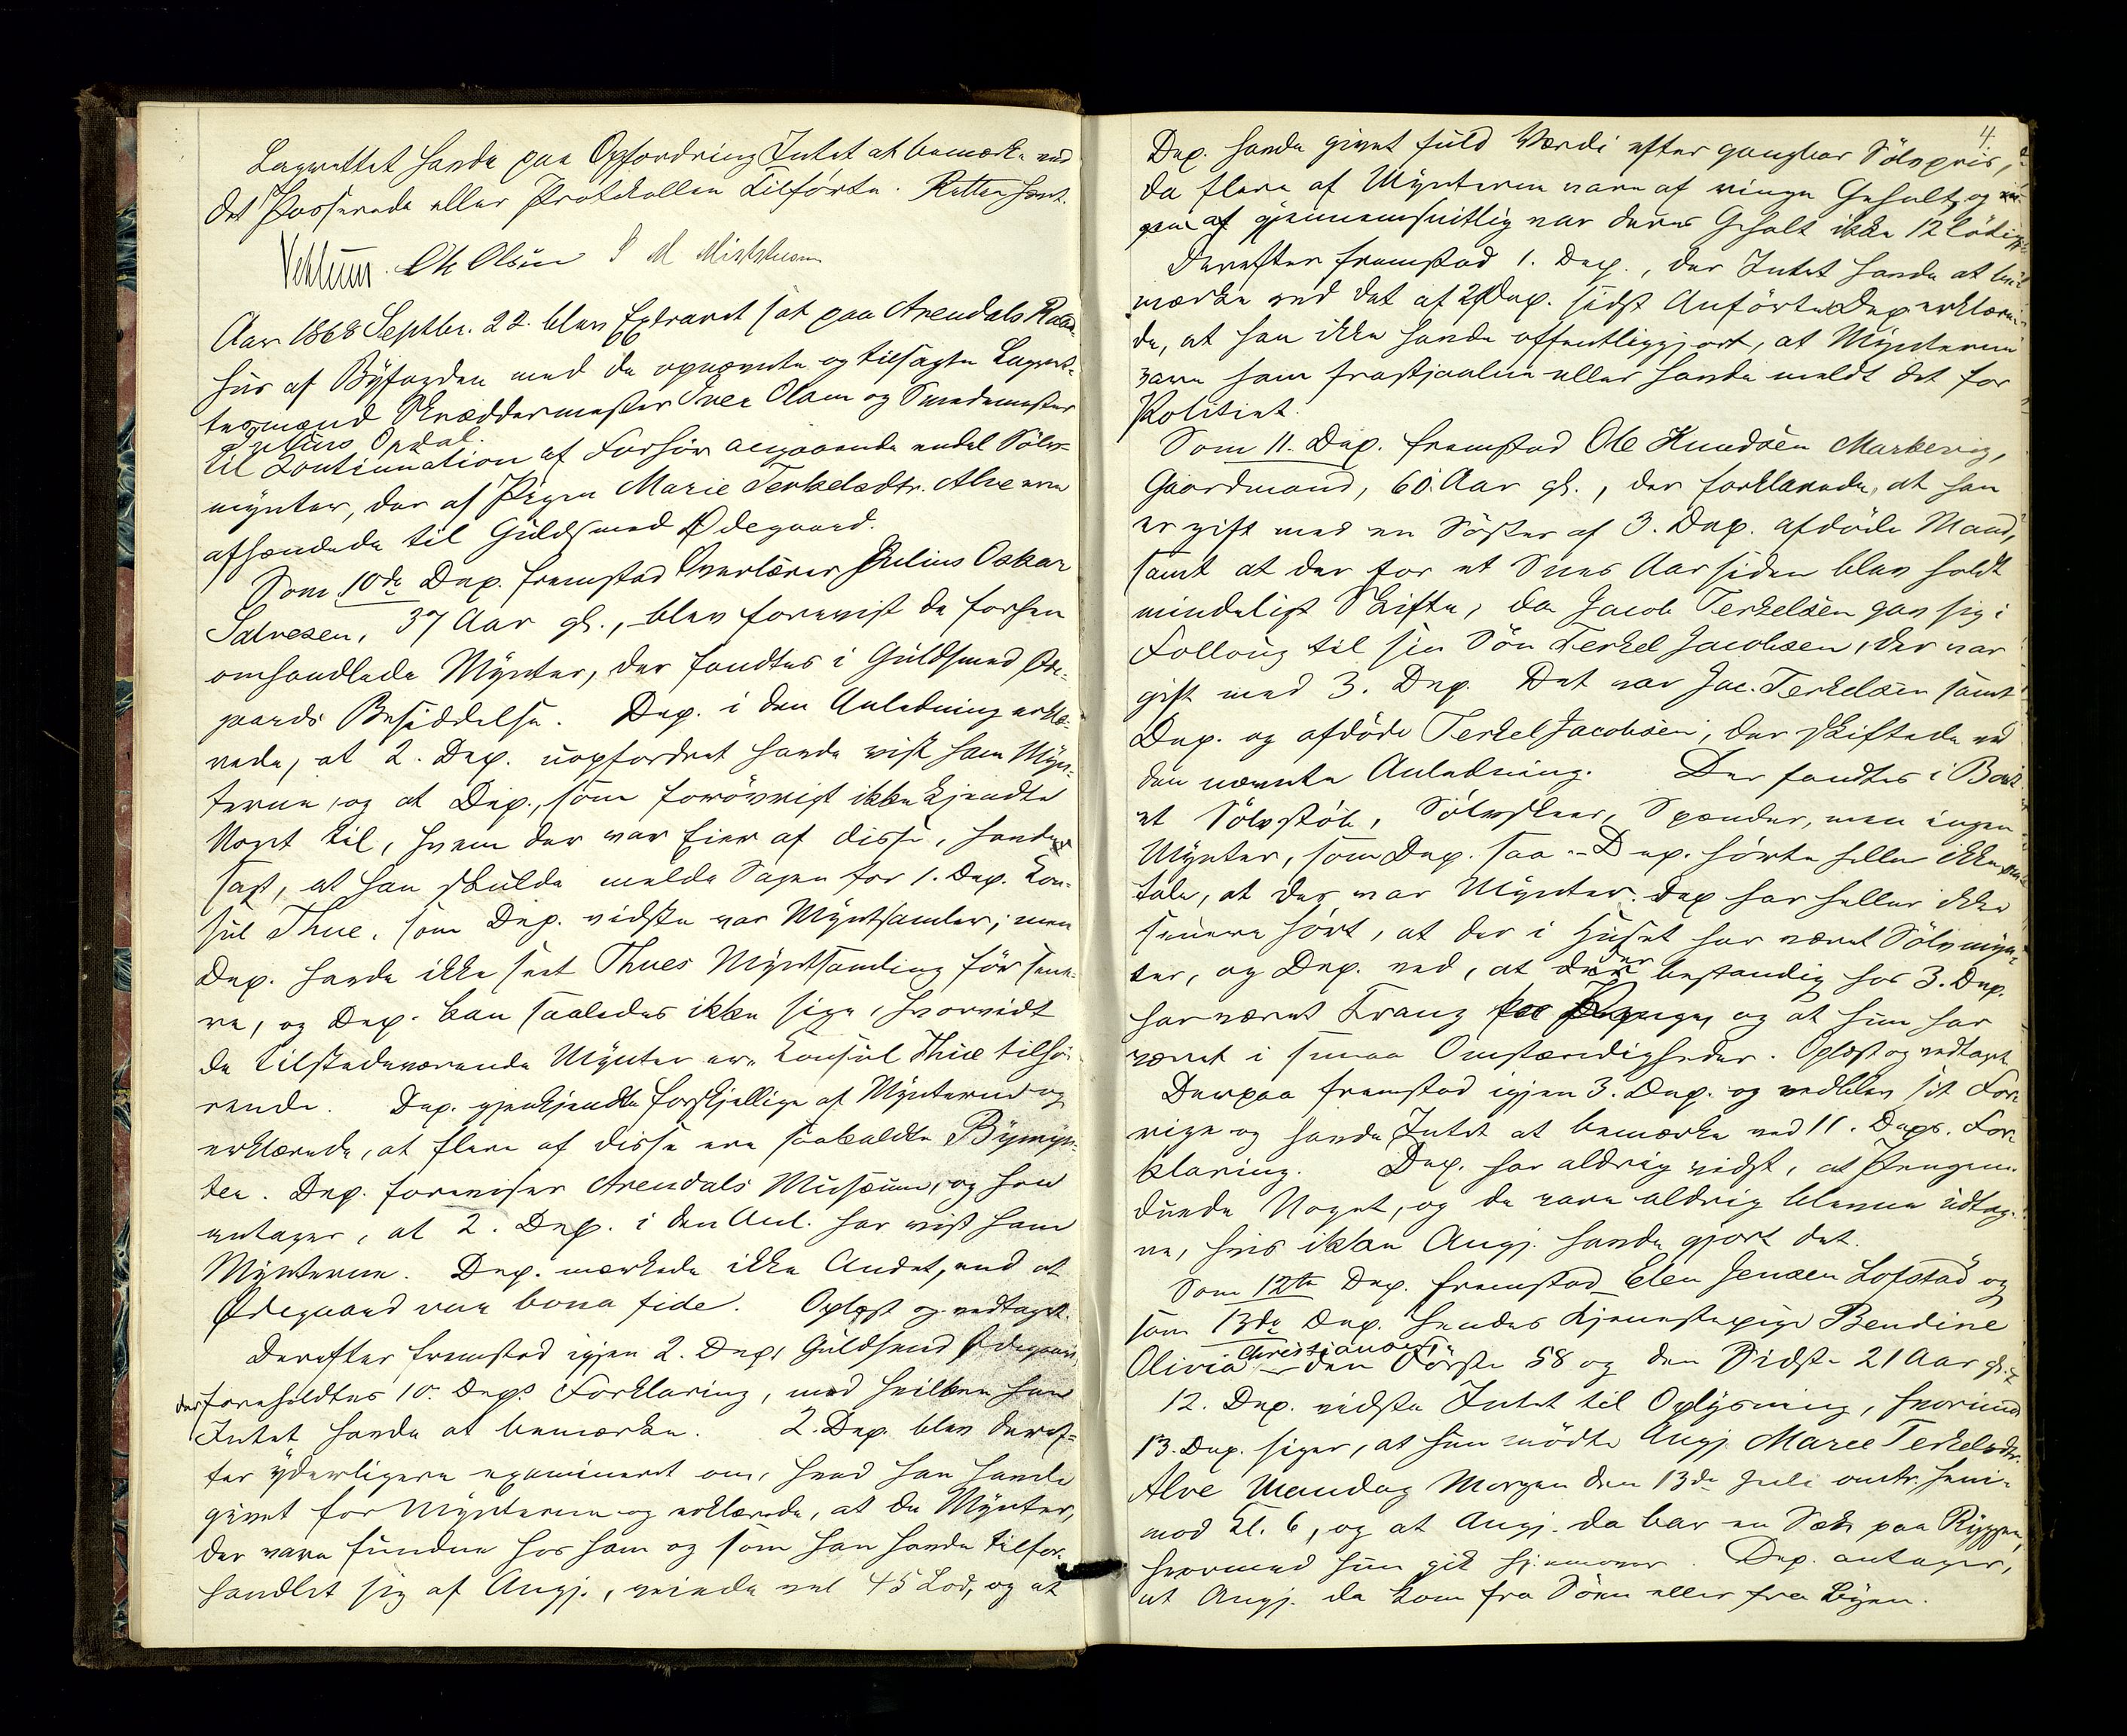 Lagrettet havde paa Opfordring Intet at bemærke ved
det Passerede eller Protokollen Tilførte. Retten hævt.
Ole Olsen
Aar 1868 Septbr. 22. blev Extraret sat paa Arendals Raad-
hus af Byfogden med de opnævnte og tilsagte Lagret-
tesmænd Skræddermester Iver Olsen og Smedemester
Julius Opdal.
til Continuation af Forhør angaaende endel Sølv-
mynter, der af Pigen Marie Terkelsdtr. Alve ere
afhændede til Guldsmed Ødegaard.
Som 10de Dep. fremstod Overlærer Julius Oskar
Salvesen, 37 Aar gl., blev forevist de forhen
omhandlede Mynter, der fandtes i Guldsmed Øde-
gaards Besiddelse. Dep. i den Anledning erklæ-
rede, at 2. Dep. uopfordret havde vist ham Myn-
terne, og at Dep., som forøvrigt ikke kjendte
Noget til, hvem der var Eier af disse, havde
sagt, at han skulde melde Sagen for 1. Dep. Kon-
sul Thue, som Dep. vidste var Myntsamler; men
Dep. havde ikke seet Thues Myntsamling før sene-
re, og Dep. kan saaledes ikke sige, hvorvidt
de tilstedeværende Mynter ere Konsul Thue tilhø-
rende. Dep. gjenkjendte forskjellige af Mynterne og
erklærede, at flere af disse ere saakaldte Bymyn-
ter. Dep. foreviser Arendals Musæum, og han
antager, at 2. Dep. i den Anl. har vist ham
Mynterne. Dep. mærkede ikke Andet, end at
Ødegaard var bona fide. Oplæst og vedtaget.
Derefter fremstod igjen 2. Dep, Guldsmed Ødegaard,
der foreholdtes 10. Deps Forklaring, mod hvilken han
Intet havde at bemærke. 2. Dep. blev deref-
ter yderligere examineret om, hvad han havde
givet for Mynterne og erklærede, at de Mynter,
der vare fundne hos ham og som han havde tilfor-
handlet sig af Angj., veiede vel 45 Lod, og at
4.
Dep. havde givet fuld Værdi efter gangbar Sølvpris,
da flere af Mynterne vare af ringe Gehalt, og
gjennemsnitlig var deres Gehalt ikke 12 lødig
Derefter fremstod 1. Dep., der Intet havde at be-
mærke ved det af 2. Dep. sidst Anførte. Dep erklære-
de, at han ikke havde offentliggjort, at Mynterne
vare ham frastjaalne eller havde meldt det for
Politiet.
Som 11. Dep. fremstod Ole Knudsen Markevig,
Gaardmand, 60 Aar gl., der forklarede, at han
er gift med en Søster af 3. Dep. afdøde Mand,
samt at der for et Snes Aar siden blev holdt
mindeligt Skifte, da Jacob Terkelsen gav sig i
Follaug til sin Søn Terkel Jacobsen, der var
gift med 3. Dep. Det var Jac. Terkelsen samt
Dep. og afdøde Terkel Jacobsen, der skiftede ved
den nævnte Anledning. Der fandtes i Boet
et Sølvstøb, Sølvskeer, Spænder, men ingen
Mynter, som Dep. saa. – Dep. hørte heller ikke
tale, at der var Mynter. Dep har heller ikke
senere hørt, at der i Huset har været Sølvmyn-
ter, og Dep. ved, at der bestandig hos 3. Dep.
har været Trang for Penge, og at hun har
været i smaa Omstændigheder. Oplæst og vedtaget
Derpaa fremstod igjen 3. Dep. og vedblev sit For-
rige og havde Intet at bemærke ved 11. Deps. For-
klaring. Dep. har aldrig vidst, at Pengene
duede Noget, og de vare aldrig blevne udtag-
ne, hvis ikke Angj. havde gjort det.
Som 12te Dep. fremstod Elen Jensen Lofstad og
som 13de Dep. hendes Tjenestepige Bendine
Olivia Christiansen – den Første 58 og den Sidste 21 Aar gl.
12. Dep. vidste Intet til Oplysning, hvorimod
13. Dep. siger, at hun mødte Angj. Maree Terkelsdtr.
Alve Mandag Morgen den 13de Juli omtr. heni-
mod Kl. 6, og at Angj. da bar en Sæk paa Ryggen,
hvormed hun gik hjemover. Dep. antager,
at Angj. da kom fra Søen eller fra Byen.